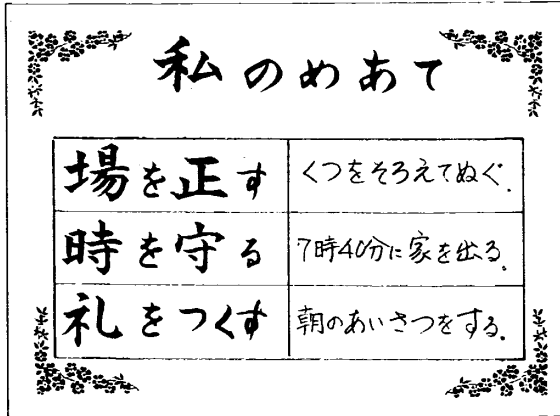 私のめあて
場を正す くつをそろえてぬぐ.
時を守る 7時40分に家を出る.
礼をつくす 朝のあいさつをする.